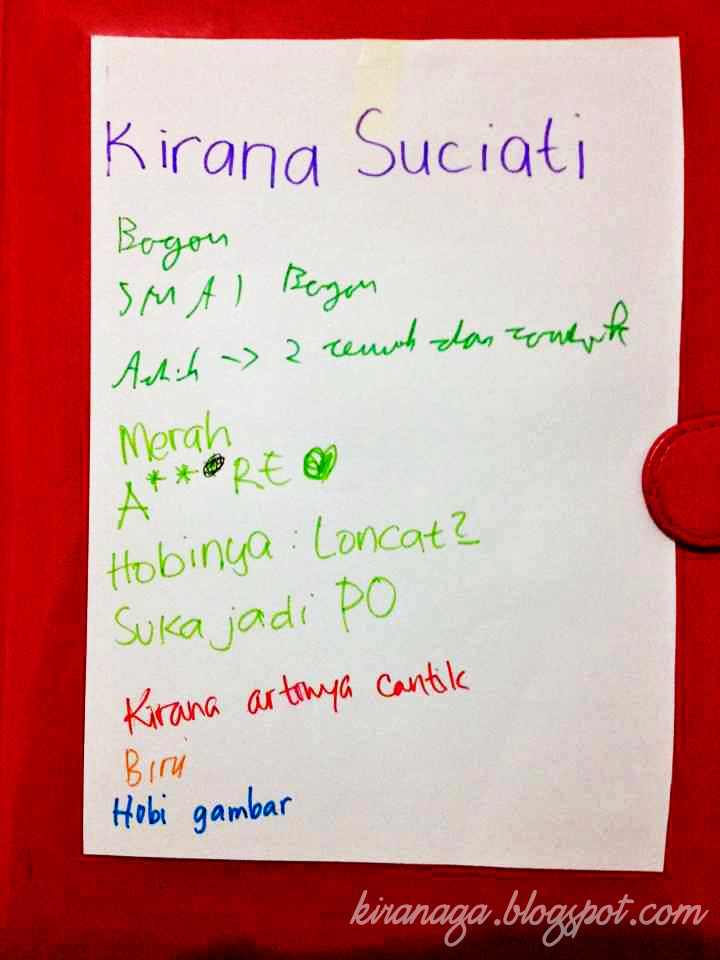 Kirana Suciati
Bogor
SMA 1 Bogor
Adik -> 2 cewek dan cowok
Merah
A** RE
Hobinya : Loncat2
Suka jadi PO
Kirana artinya cantik
Biru
Hobi gambar
kiranaga.blogspot.com